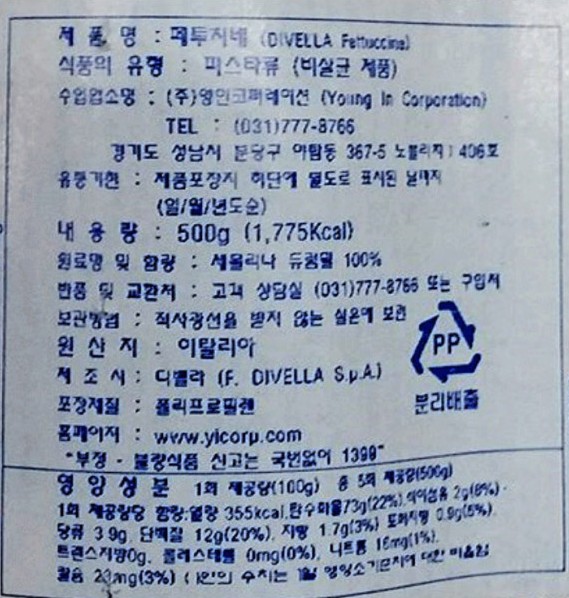 제 품 명 : 페투치네 (DIVELLA Fettuccine)
식품의 유형 : 파스타류 (비살균 제품)
수입업소명 : (주)영인코퍼레이션 (Young In Corporation)
TEL : (031)777-8766
경기도 성남시 분당구 야탑동 367-5 406호
유통기한 : 제품포장지 하단에 별도로 표시된 날까지
(일/월/년도순)
내 용 량 : 500g (1,775Kcal)
원료명 및 함량 : 세몰리나 듀럼밀 100%
반품 및 교환처 : 고객 상담실 (031)777-8766 또는 구입처
보관방법 : 직사광선을 받지 않는 실온에 보관
원 산 지 : 이탈리아
제 조 사 : 디벨라 (F. DIVELLA S.p.A.)
PP
포장재질 : 폴리프로필렌
분리배출
홈페이지 : www.yicorp.com
"부정 - 불량식품 신고는 국번없이 1399"
영 양 성 분 1회 제공량(100g) 총 5회 제공량(500g)
1회 제공량당 함량:열량 355kcal,탄수화물73g(22%),식이섬유 2g(8%)
당류 3.9g, 단백질 12g(20%), 지방 1.7g(3%) 포화지방 0.9g(6%),
트랜스지방0g, 콜레스테롤 0mg(0%), 나트륨 16mg(1%),
칼슘 23mg(3%) ( )안의 수치는 1일 영양소기준치에 대한 비율임